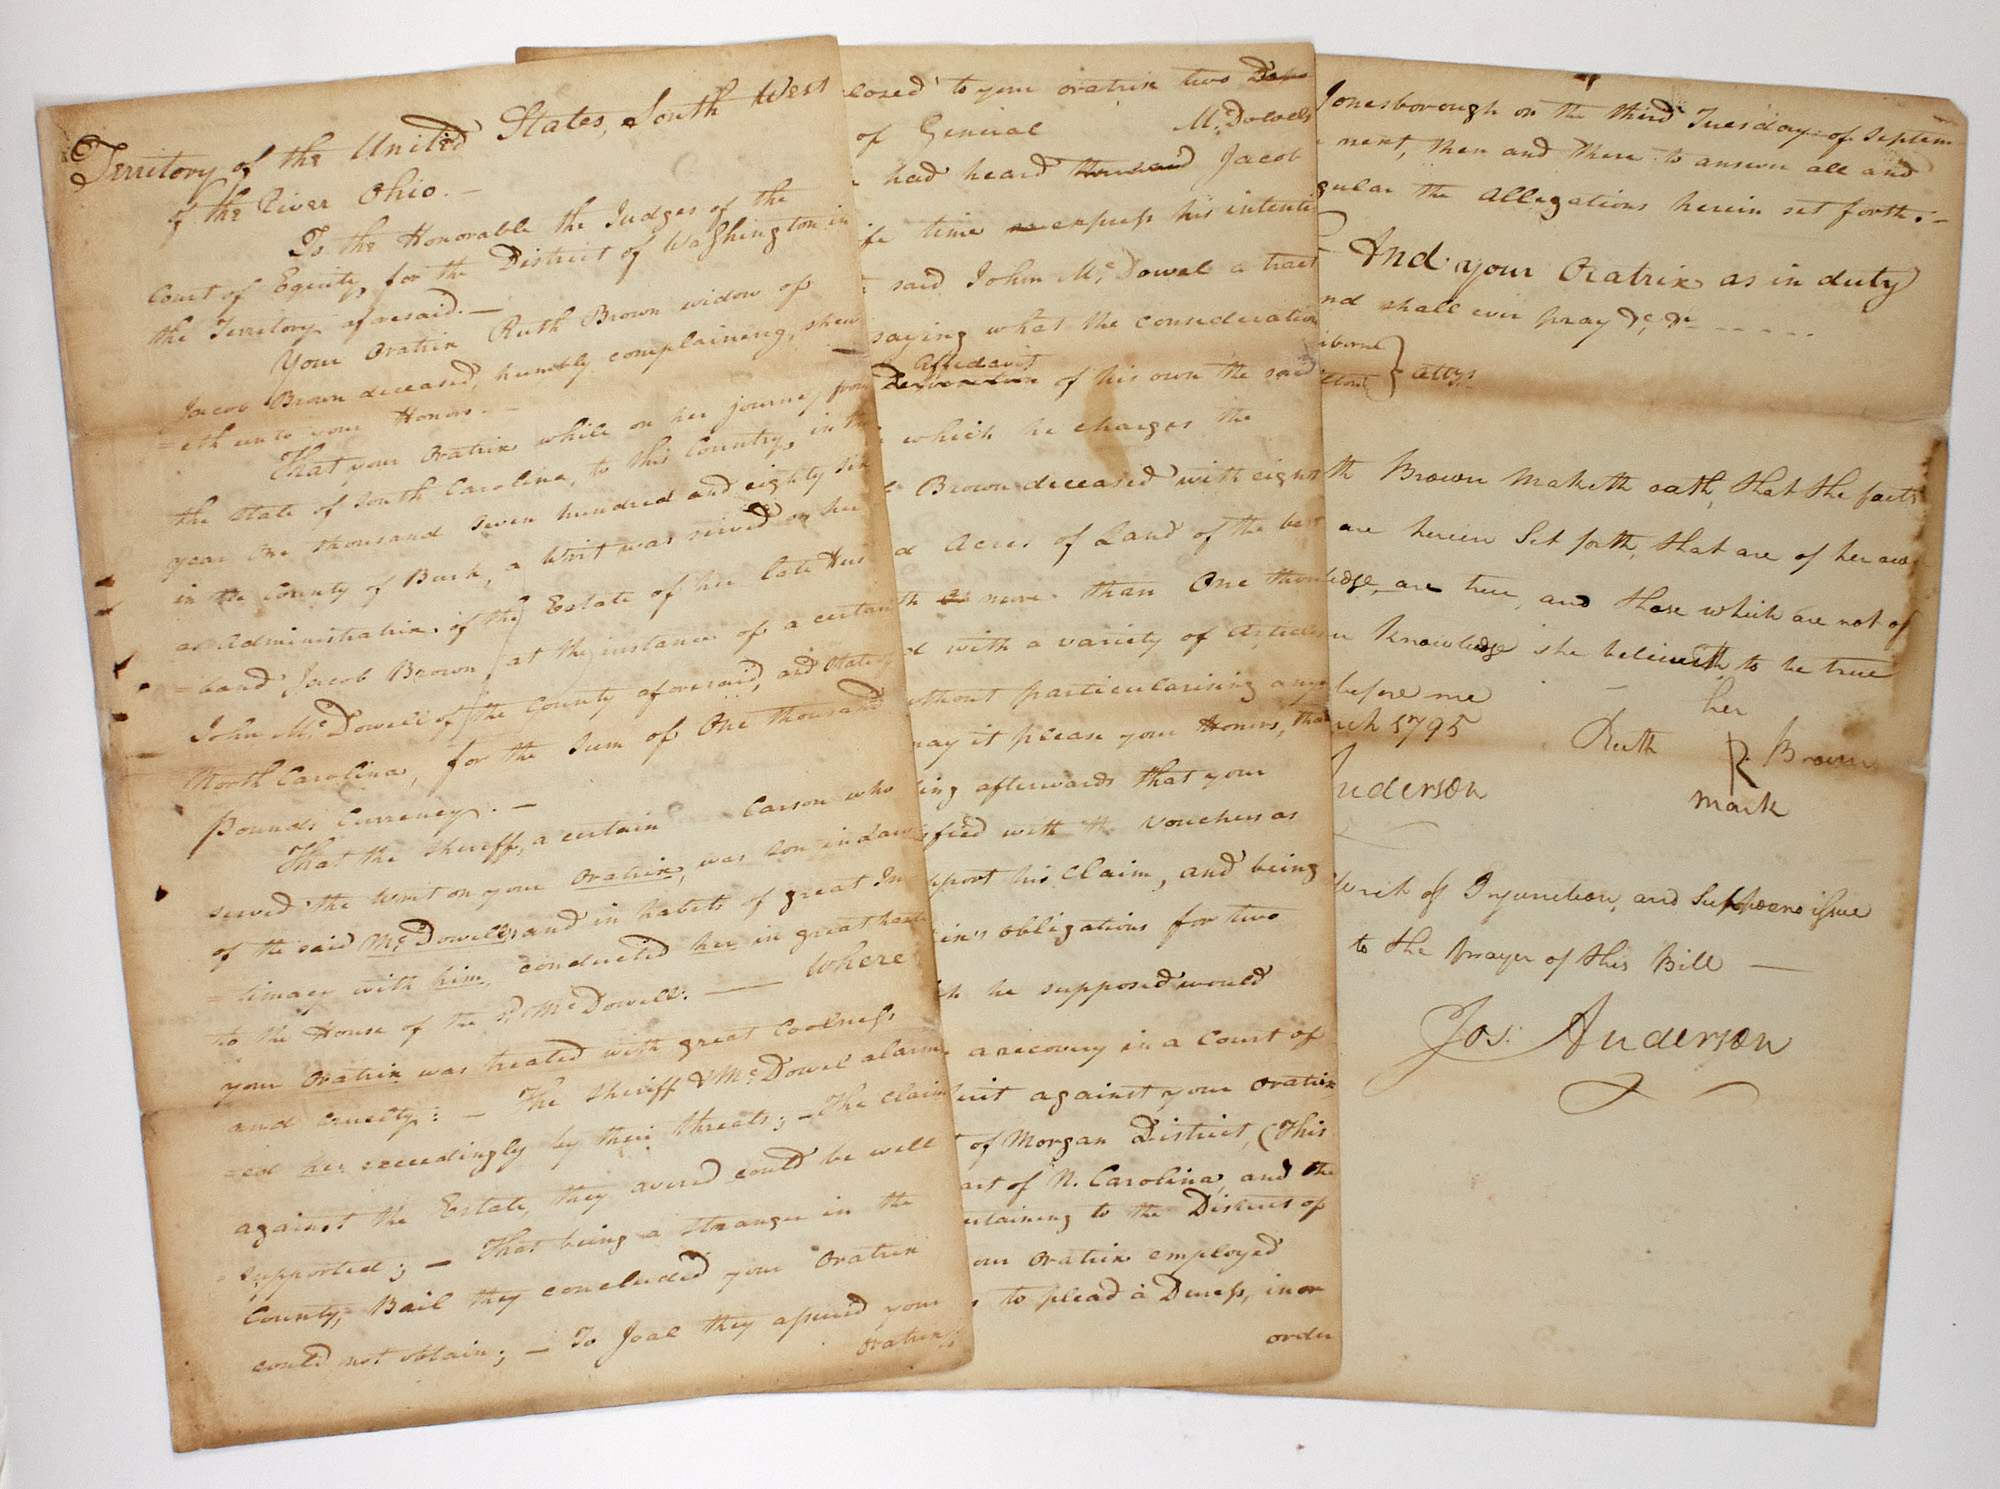 Territory of the United States, South West
of the River Ohio. —
To the Honorable the Judges of the
Court of Equity, for the District of Washington in
the Territory aforesaid. —
Your Oratrix Ruth Brown widow of
Jacob Brown deceased, humbly complaining, shew
=eth unto your Honors. —
That your Oratrix while on her journey from
the State of South Carolina, to this Country, in the
year One thousand seven hundred and eighty six
in the County of Burk, a Writ was served on her
as Administratrix of the Estate of her late Hus
=band Jacob Brown, at the instance of a certain
John Mc.Dowell of the County aforesaid, and State of
North Carolina, for the Sum of One thousand
Pounds Currency. —
That the Sheriff, a certain Carson who
served the Writ on your Oratrix, was son in law
of the said Mc.Dowell, and in habits of great In
=timacy with him, conducted her in great haste
to the House of the sd. Mc.Dowell. — Where
your Oratrix was treated with great Coolness
and cruelty: — The Sheriff & Mc.Dowel alarm
=ed her exceedingly by their threats; — The claim
against the Estate, they avered could be well
supported; — That being a stranger in the
County, Bail they concluded your Oratrix
could not obtain; — To Goal they assured your
Oratrix
closed to your oratrix two
of General Mc.Dowels
had heard Jacob
life time express his intenti
said John Mc.Dowel a tract
saying what the consideration
Affidavit
of his own the said
which he charges the
Brown deceased with eight
Acres of Land of the best
th more than One thou
with a variety of Articles
without particularising any
may it please your Honors, that
ing afterwards that your
sfied with the Vouchers as
pport his Claim, and being
ix's obligations for two
ch he supposed would
a recovery in a Court of
Suit against your Oratrix
of Morgan District, (This
art of N. Carolina, and the
rtaining to the District of
our Oratrix employed
to plead a Duress, in or
order
Jonesborough on the third Tuesday of Septem
next, then and there to answer all and
gular the allegations herein set forth. —
And your Oratrix as in duty
nd shall ever pray &c. &c. - - - - -
iborne
} attys.
th Brown Maketh oath, that the facts
are herein Set forth, that are of her own
ledge, are true, and those which are not of
knowledge she believeth to be true
before me
rch 1795
Anderson
her
Ruth R Brown
mark
Writ of Injunction, and Subpoena issue
to the prayer of this Bill —
Jos: Anderson